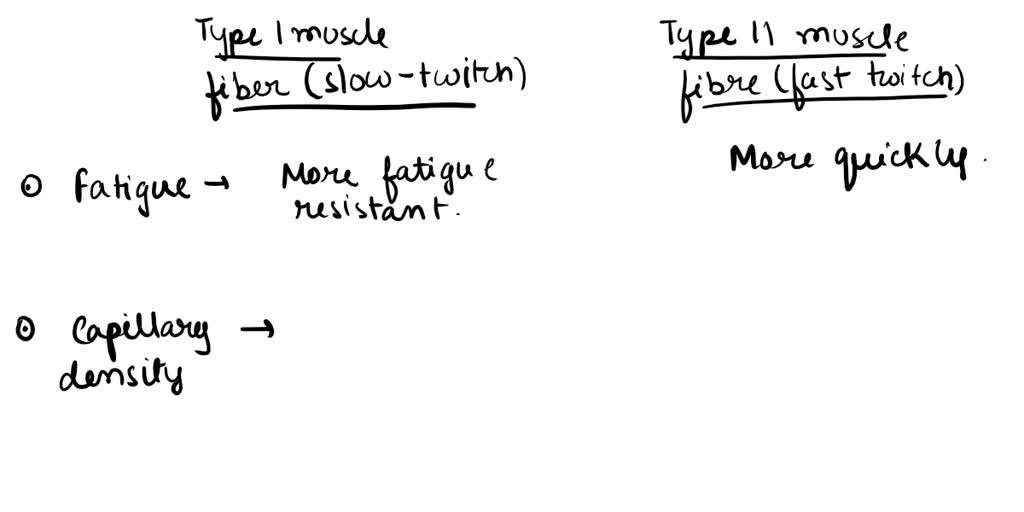 Type I muscle
fiber (slow-twitch)
Type II muscle
fibre (fast twitch)
⊙ Fatigue → More fatigue
resistant.
More quickly.
⊙ Capillary →
density